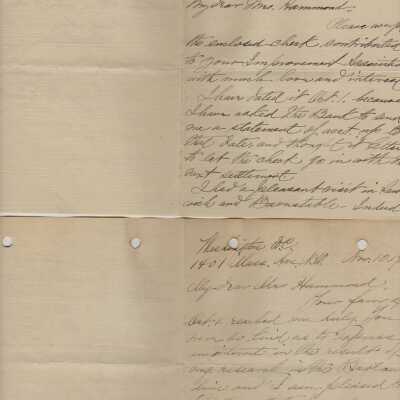 My dear Mrs. Hammond:
Please accept
the enclosed check contributed
to your Improvement Associat
with much love and interest
I have dated it Oct. 1. because
I have asked the Bank to send
me a statement of acct. up to
that date, and thought it better
to let the check go in with the
next settlement
I had a pleasant visit in
and Barnstable. Indeed
Washington D.C.
1401 Mass. Ave. N.W. Nov. 10, 19
My dear Mrs Hammond:
Your favor of
Oct. reached me duly. You
were so kind as to express
an interest in the results of
my research in the
line and I am pleased to